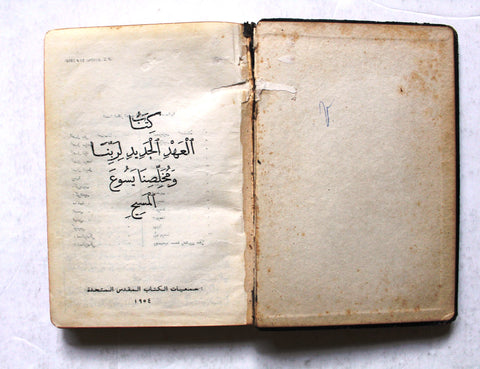 كِتَابُ
اَلْعَهْدِ الْجَدِيدِ لِرَبِّنَا
وَمُخَلِّصِنَا يَسُوعَ
الْمَسِيحِ
جمعيات الكتاب المقدس المتحدة
١٩٥٤